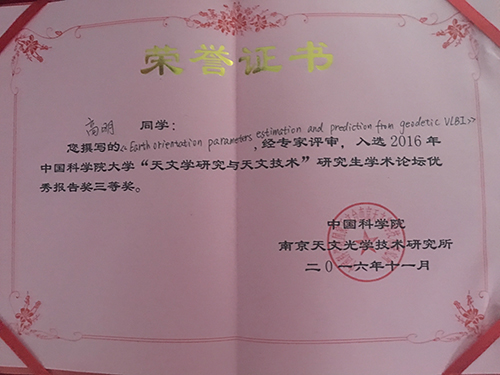 荣誉证书
高明 同学：
您撰写的《Earth orientation parameters estimation and prediction from geodetic VLBI》，经专家评审，入选2016年
中国科学院大学“天文学研究与天文技术”研究生学术论坛优
秀报告奖三等奖。
中国科学院
南京天文光学技术研究所
二〇一六年十一月